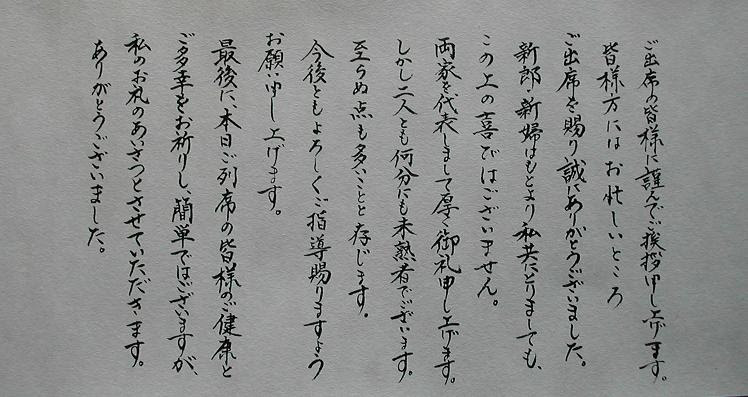 ご出席の皆様に謹んでご挨拶申し上げます。
皆様方にはお忙しいところ
ご出席を賜り誠にありがとうございました。
新郎・新婦はもとより私共にとりましても、
この上の喜びはございません。
両家を代表しまして厚く御礼申し上げます。
しかし二人とも何分にも未熟者でございます。
至らぬ点も多いことと存じます。
今後ともよろしくご指導賜りますよう
お願い申し上げます。
最後に、本日ご列席の皆様のご健康と
ご多幸をお祈りし、簡単ではございますが、
私のお礼のあいさつとさせていただきます。
ありがとうございました。